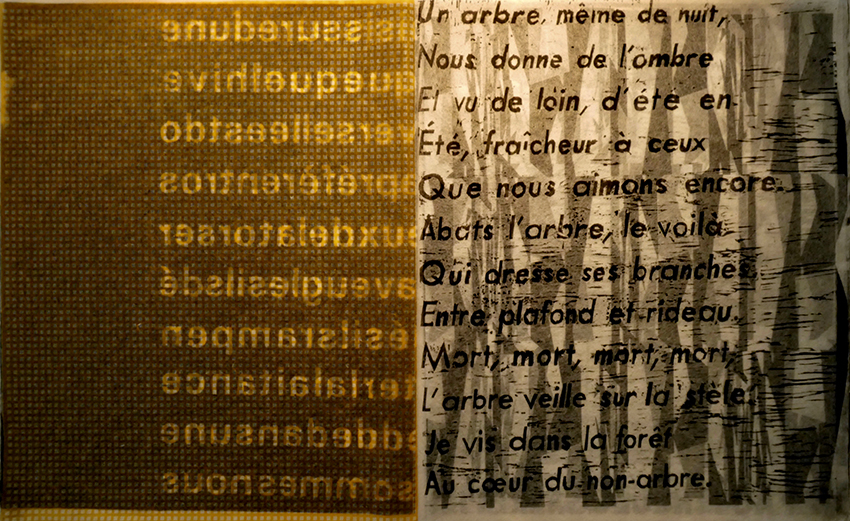 ssuredune
uequelhive
erselleestdo
préférentros
uxdelatorser
aveuglesilsdé
ésilstrampen
terlalaitance
ddedansune
sommesnous
Un arbre, même de nuit,
Nous donne de l'ombre
Et vu de loin, d'été en
Été, fraîcheur à ceux
Que nous aimons encore.
Abats l'arbre, le voilà
Qui dresse ses branches
Entre plafond et rideau.
Mort, mort, mort, mort,
L'arbre veille sur la stèle.
Je vis dans la forêt
Au cœur du non-arbre.